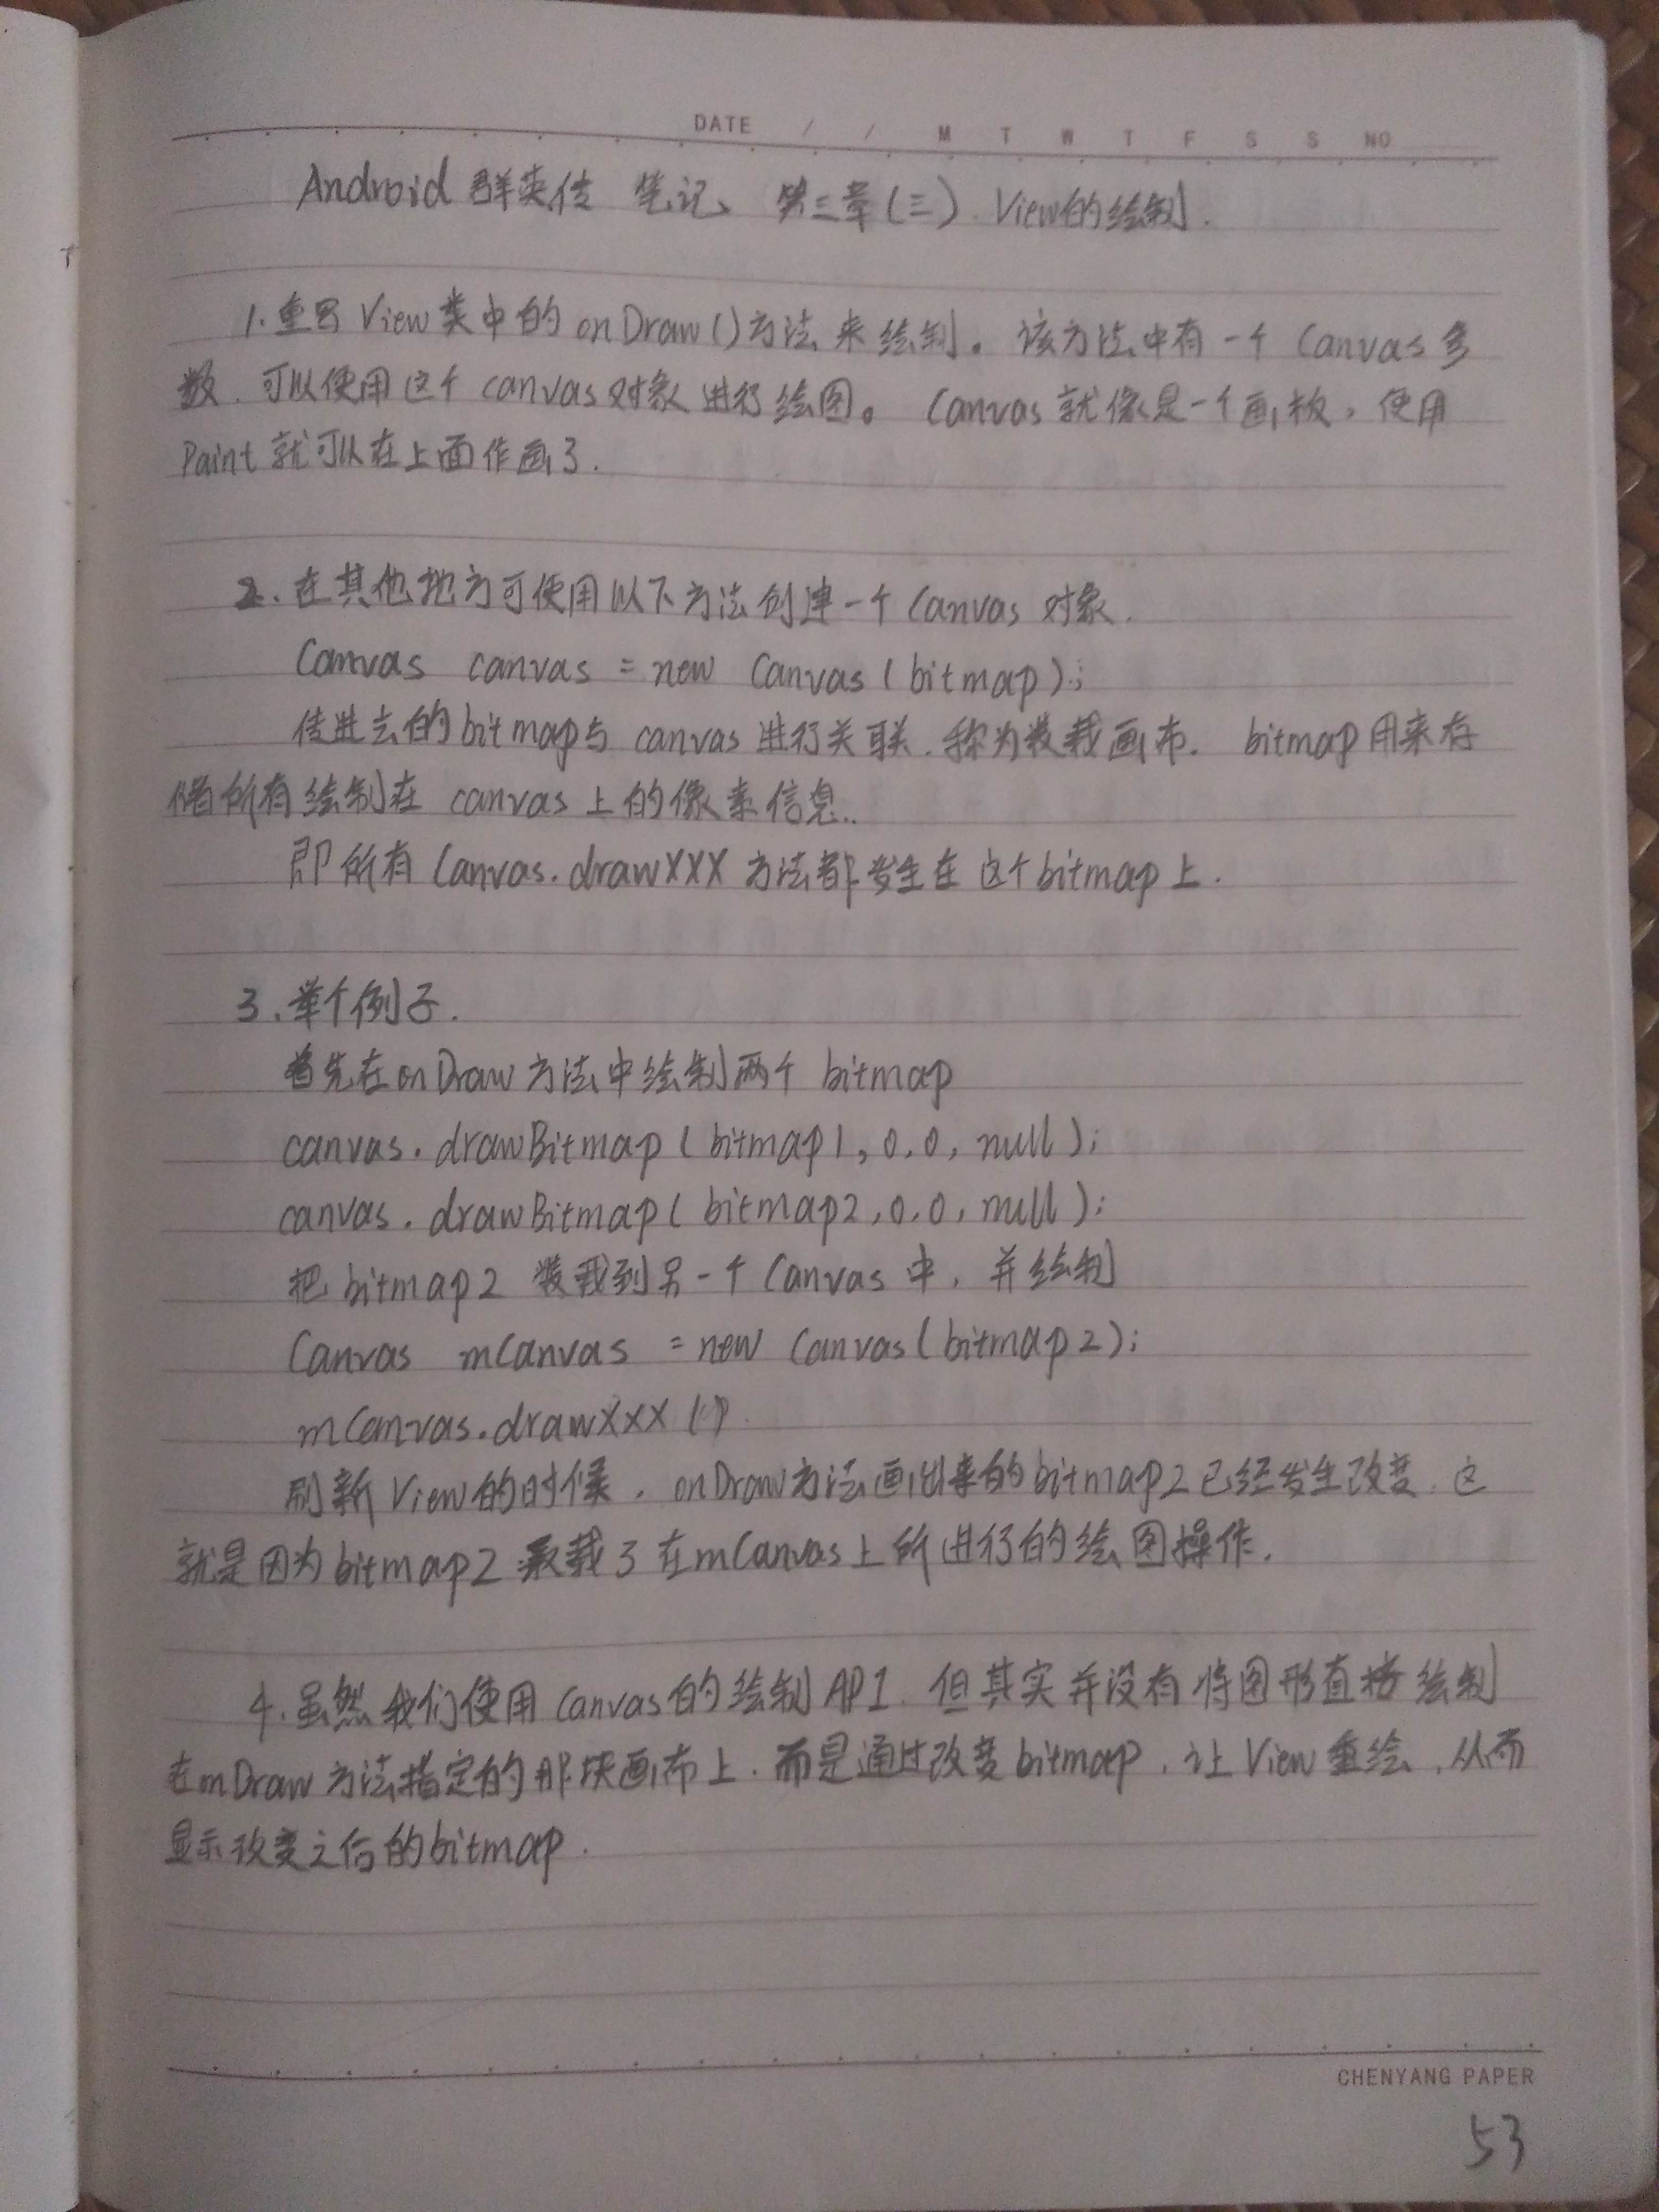 DATE / / M T W T F S S NO
Android 群英传 笔记、第三章(三) View的绘制.
1.重写View类中的onDraw()方法来绘制。该方法中有一个Canvas参
数.可以使用这个canvas对象进行绘图。Canvas就像是一个画板,使用
Paint就可以在上面作画了.
2.在其他地方可使用以下方法创建一个Canvas对象.
Canvas canvas = new Canvas(bitmap);
传进去的bitmap与canvas进行关联.称为装载画布. bitmap用来存
储所有绘制在canvas上的像素信息..
即所有Canvas.drawXXX方法都发生在这个bitmap上.
3.举个例子.
首先在onDraw方法中绘制两个bitmap
canvas.drawBitmap(bitmap1,0,0,null);
canvas.drawBitmap(bitmap2,0,0,null);
把bitmap2装载到另一个Canvas中,并绘制
Canvas mCanvas = new Canvas(bitmap2);
mCanvas.drawXXX()
刷新View的时候,onDraw方法画出来的bitmap2已经发生改变.这
就是因为bitmap2承载了在mCanvas上所进行的绘图操作.
4.虽然我们使用Canvas的绘制API.但其实并没有将图形直接绘制
在onDraw方法指定的那块画布上.而是通过改变bitmap,让View重绘,从而
显示改变之后的bitmap.
CHENYANG PAPER
53